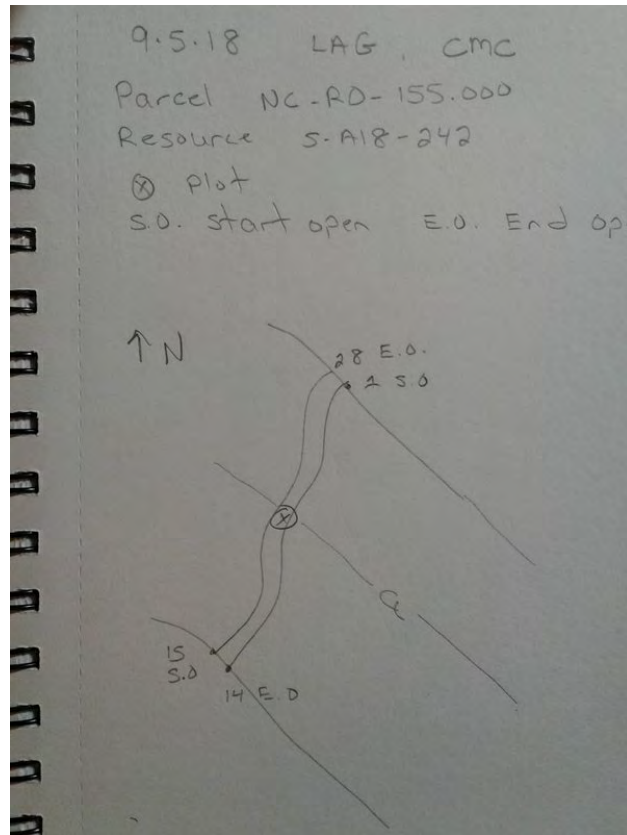 9.5.18 LAG, CMC
Parcel NC-RO-155.000
Resource S-A18-242
ⓧ Plot
S.O. start open E.O. End op
↑ N
28 E.O.
1 S.O
℄
15
S.O
14 E.O